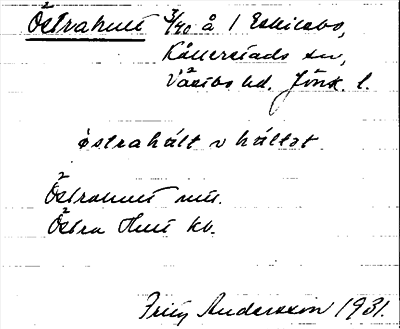 Östrahult 7/40 å 1 Eskilsbo,
Kållerstads sn,
Västbo hd. Jönk. l.
östrahált v háltət
Östrahult mtl.
Östra Hult kb.
Andersson 1931.